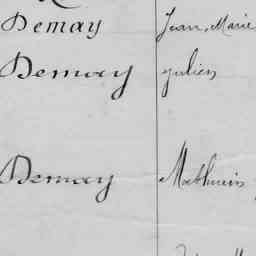 Demay Jean, Marie
Demay julien
Demay Mathurin